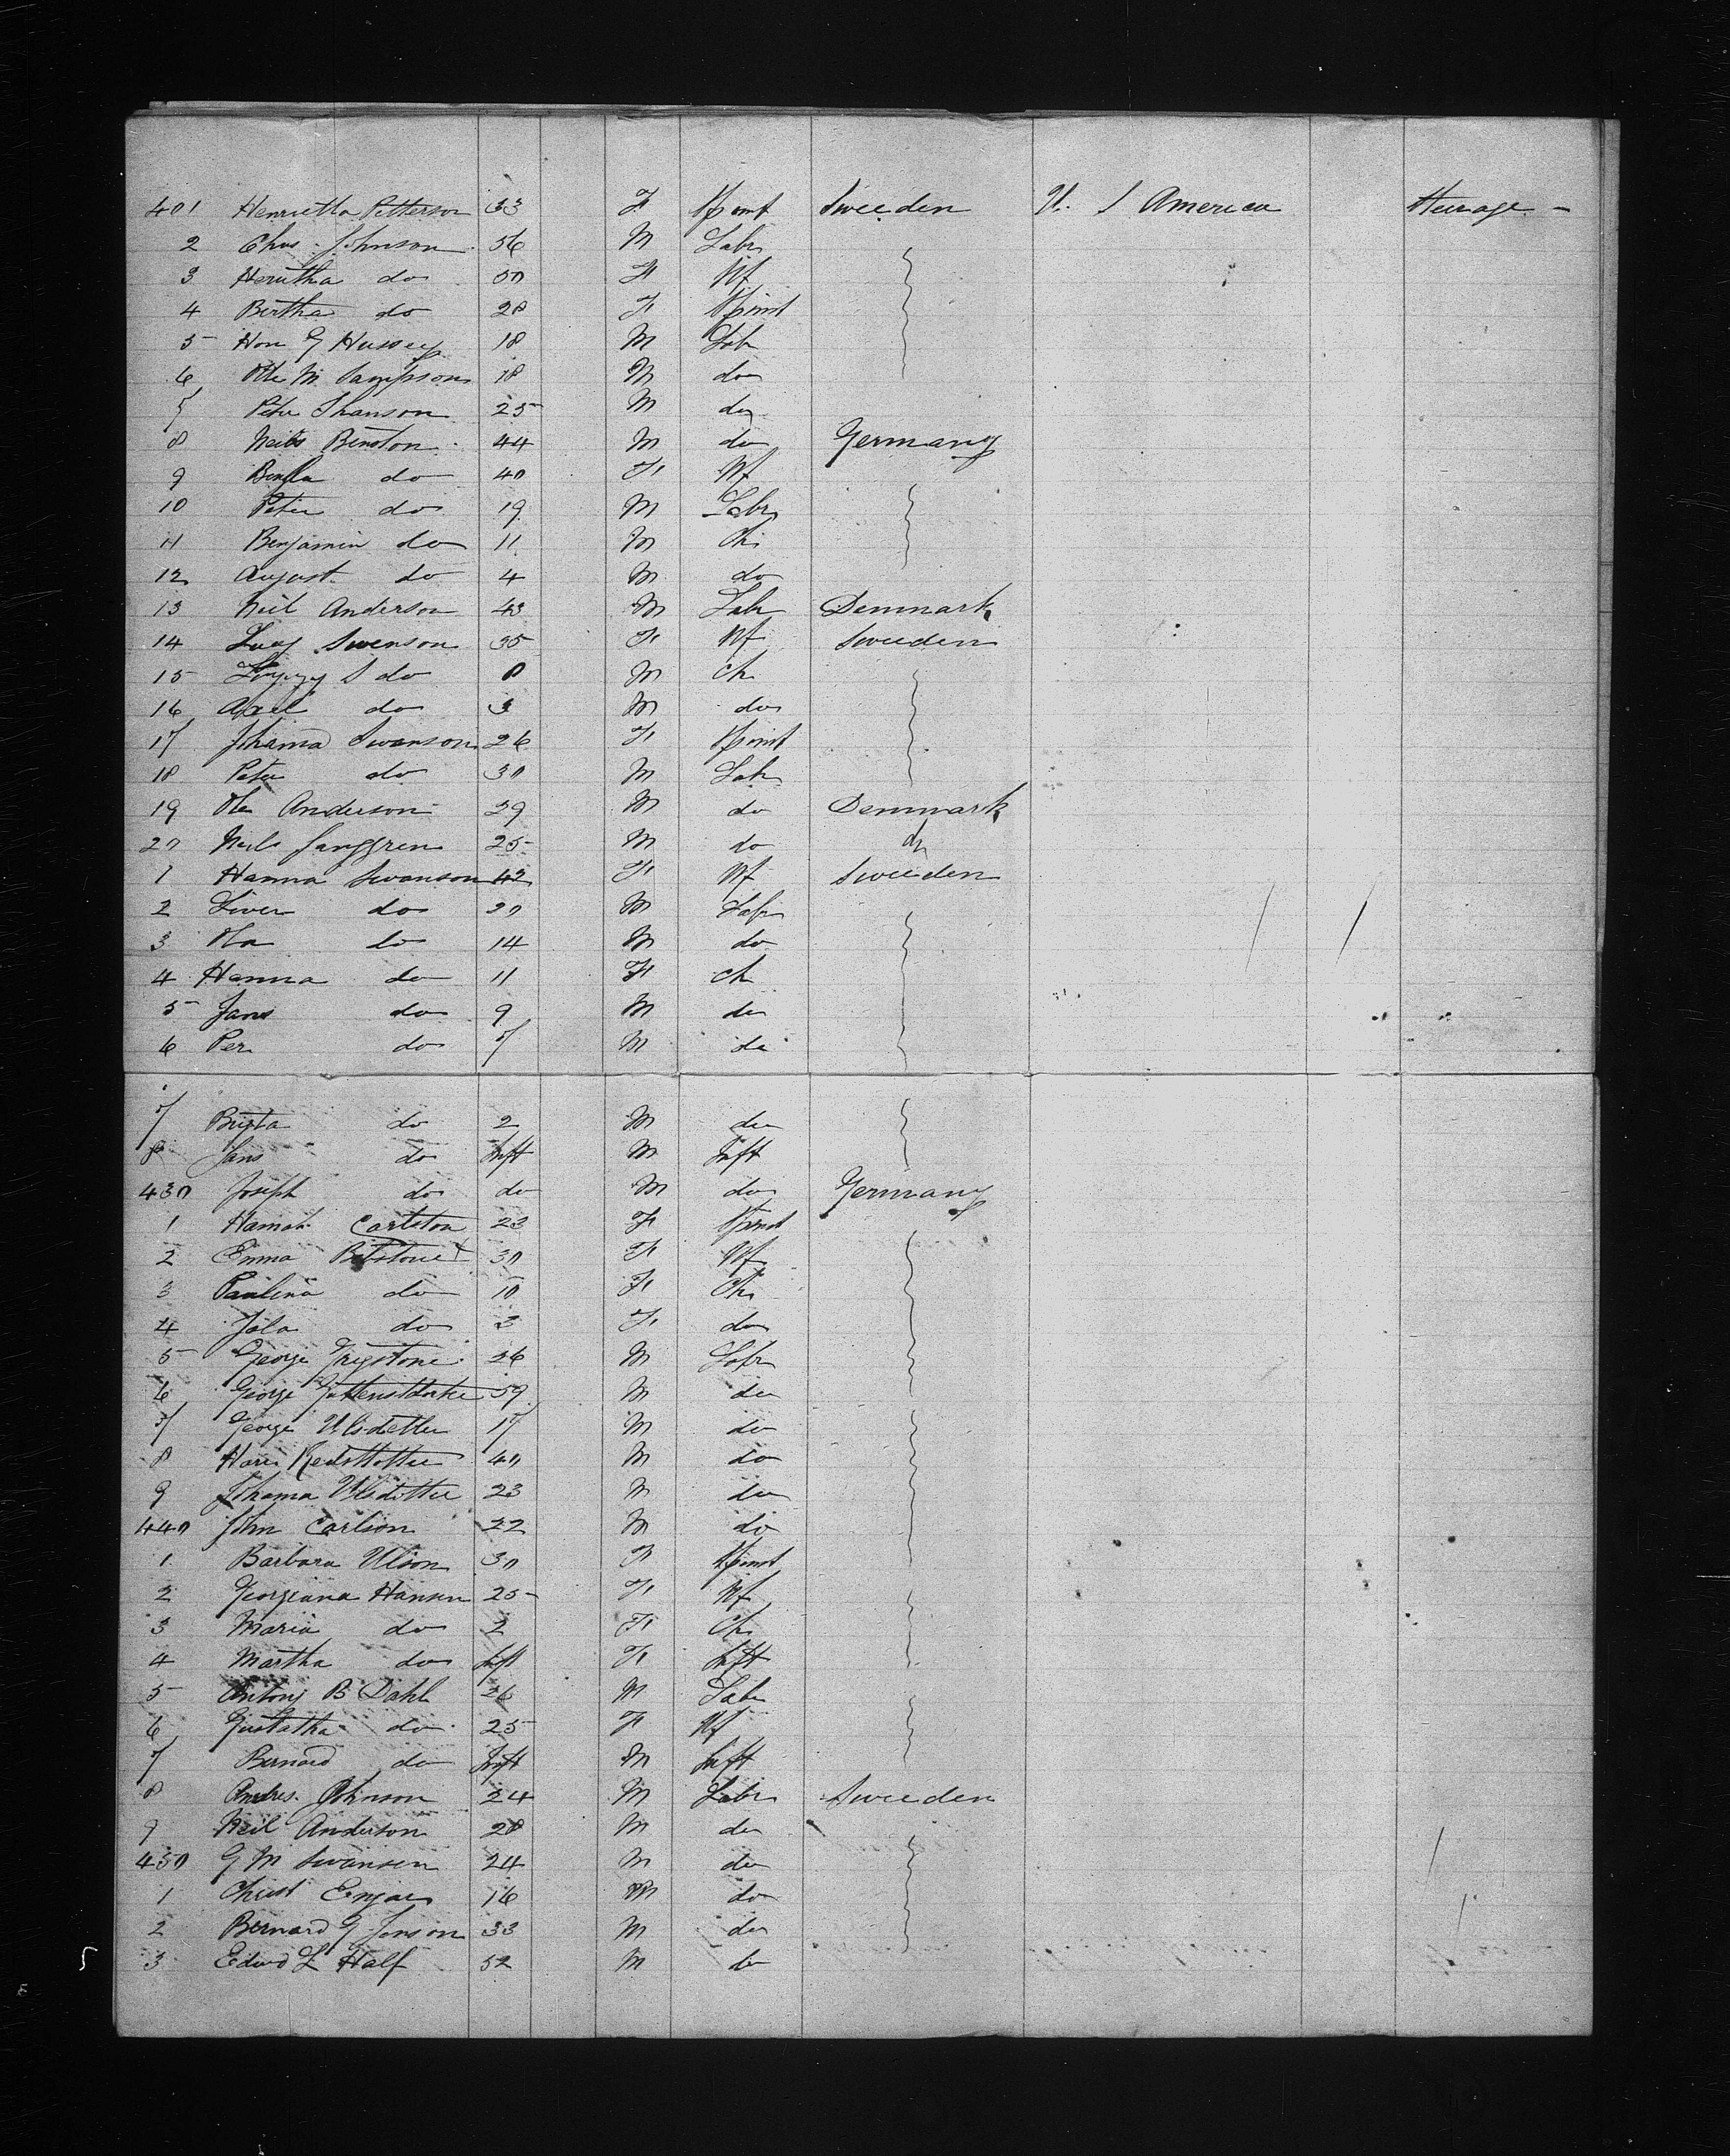 401 Henrietta Petterson 33 F Spinst Sweeden U. S America Steerage -
2 Chas Johnson 56 M Labr
3 Herutha do 50 F Wf
4 Bertha do 28 F Spinst
5 Hon G Hussey 18 M Lab
6 Ole M. Sampson 18 M do
7 Peter Shanson 25 M do
8 Neils Benston 44 M do Germany
9 do 40 F Wf
10 Peter do 19 M Labr
11 Benjamin do 11 M Ch
12 August do 4 M do
13 Neil Anderson 43 M Lab Denmark
14 Lucy Swenson 35 F Wf Sweeden
15 S do 8 M Ch
16 Axel do 3 M do
17 Johanna Swanson 26 F Spinst
18 Peter do 30 M Lab
19 Ole Anderson 29 M do Denmark
20 Neils 25 M do do
1 Hanna Swanson 42 F Wf Sweeden
2 Siver do 20 M Labr
3 Ola do 14 M do
4 Hanna do 11 F Ch
5 Jans do 9 M do
6 Per do 7 M do
7 do 2 M do
8 Jans do Inft M Inft
430 Joseph do do M do Germany
1 Hannah Carlston 23 F Spinst
2 Emma 30 F Wf
3 Paulina do 10 F Ch
4 do 3 F do
5 George Greystone 26 M Labr
6 George 59 M do
7 George 17 M do
8 40 M do
9 Johanna 23 M do
440 John Carlson 22 M do
1 Barbara Ulson 30 F Spinst
2 Georgiana Hansen 25 F Wf
3 Maria do 2 F Ch
4 Martha do Inft F Inft
5 Antony B Dahl 26 M Lab
6 do 25 F Wf
7 Bernard do Inft M Inft
8 Andres Johnson 24 M Labr Sweeden
9 Neil Anderson 28 M do
450 G M Swansen 24 M do
1 Christ 16 M do
2 Bernard G Jonson 33 M do
3 Edwd L Half 52 M do